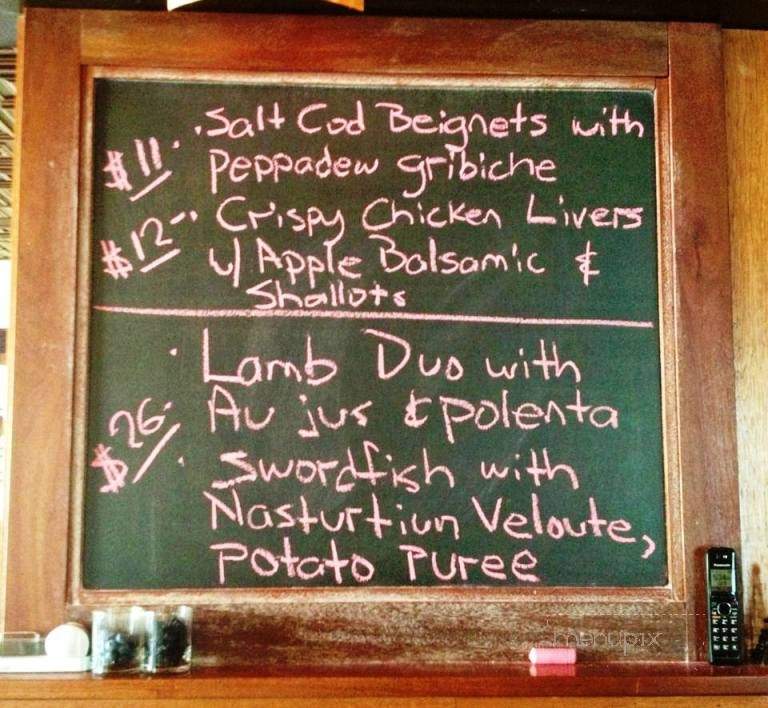 $11. · Salt Cod Beignets with
Peppadew gribiche
$12 - · Crispy Chicken Livers
w/ Apple Balsamic &
Shallots
· Lamb Duo with
$26. Au jus & polenta
· Swordfish with
Nasturtiun Veloute,
Potato Puree
Panasonic
menupix